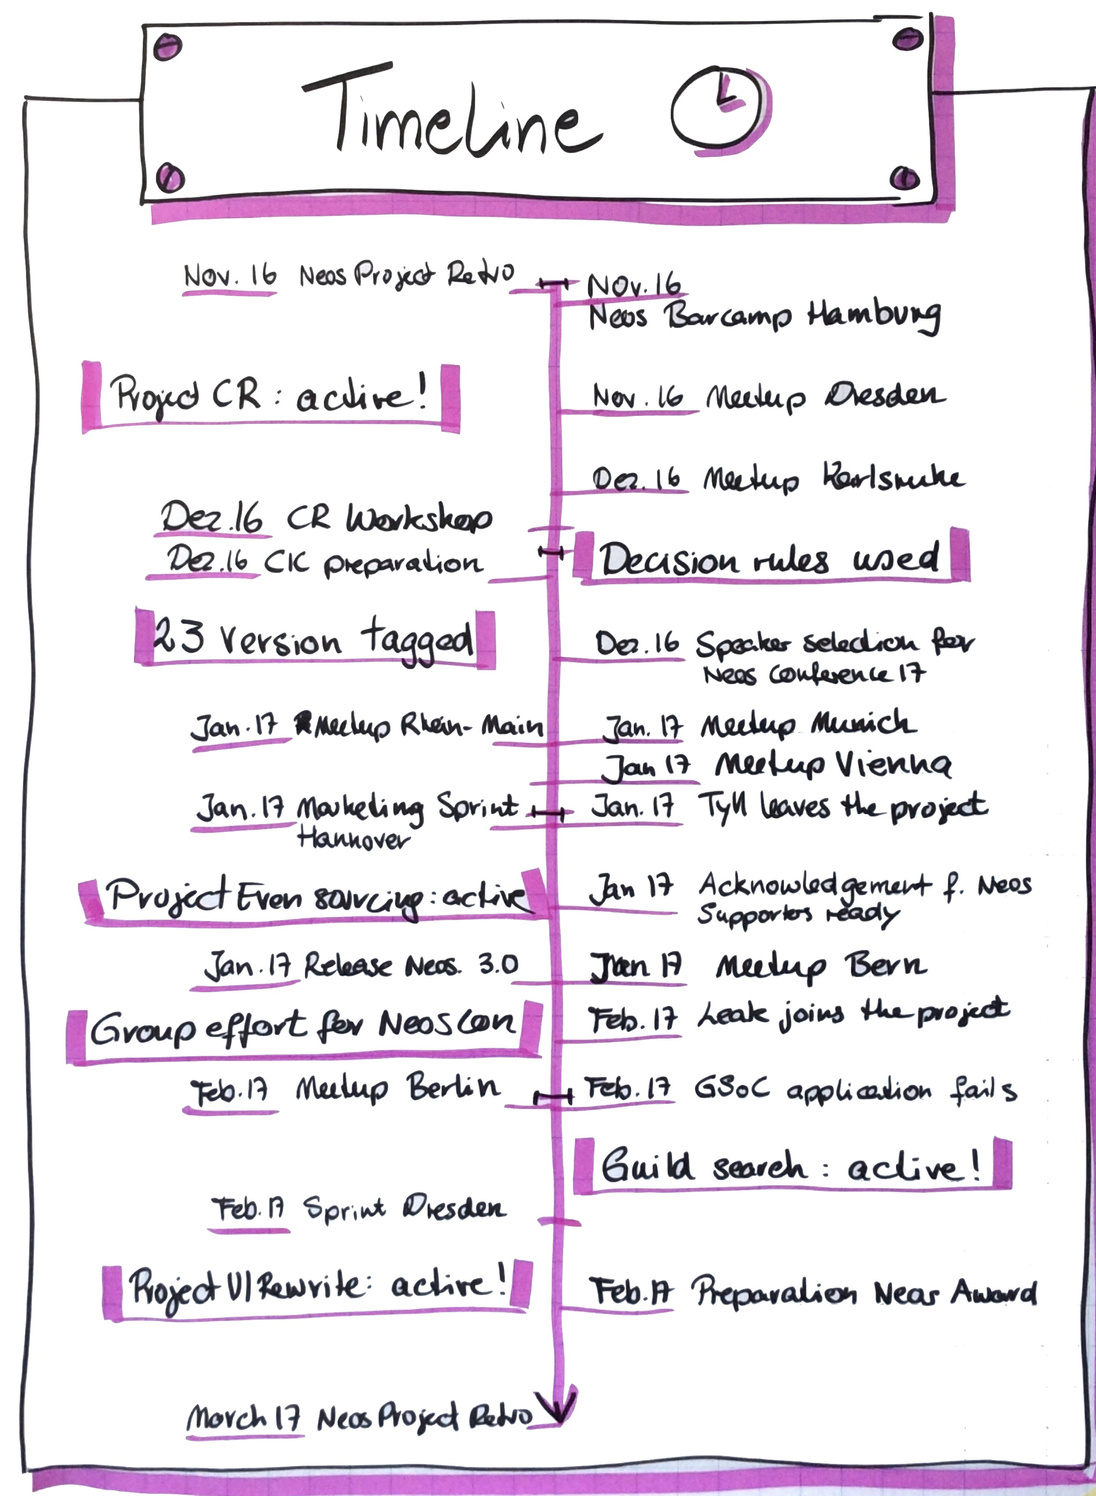 Timeline
Nov. 16 Neos Project Retro
Nov. 16
Neos Barcamp Hamburg
Project CR : active!
Nov. 16 Meetup Dresden
Dez. 16 Meetup Karlsruhe
Dez. 16 CR Workshop
Dez. 16 CIC preparation
Decision rules used
23 version tagged
Dez. 16 Speaker selection for
Neos Conference 17
Jan. 17 Meetup Rhein-Main
Jan. 17 Meetup Munich
Jan 17 Meetup Vienna
Jan. 17 Marketing Sprint
Hannover
Jan. 17 Tyll leaves the project
Project Even sourcing : active
Jan 17 Acknowledgement f. Neos
Supporters ready
Jan. 17 Release Neos. 3.0
Jan 17 Meetup Bern
Group effort for NeosCon
Feb. 17 Leak joins the project
Feb. 17 Meetup Berlin
Feb. 17 GSoC application fails
Guild search : active!
Feb. 17 Sprint Dresden
Project UI Rewrite: active!
Feb. 17 Preparation Neos Award
March 17 Neos Project Retro